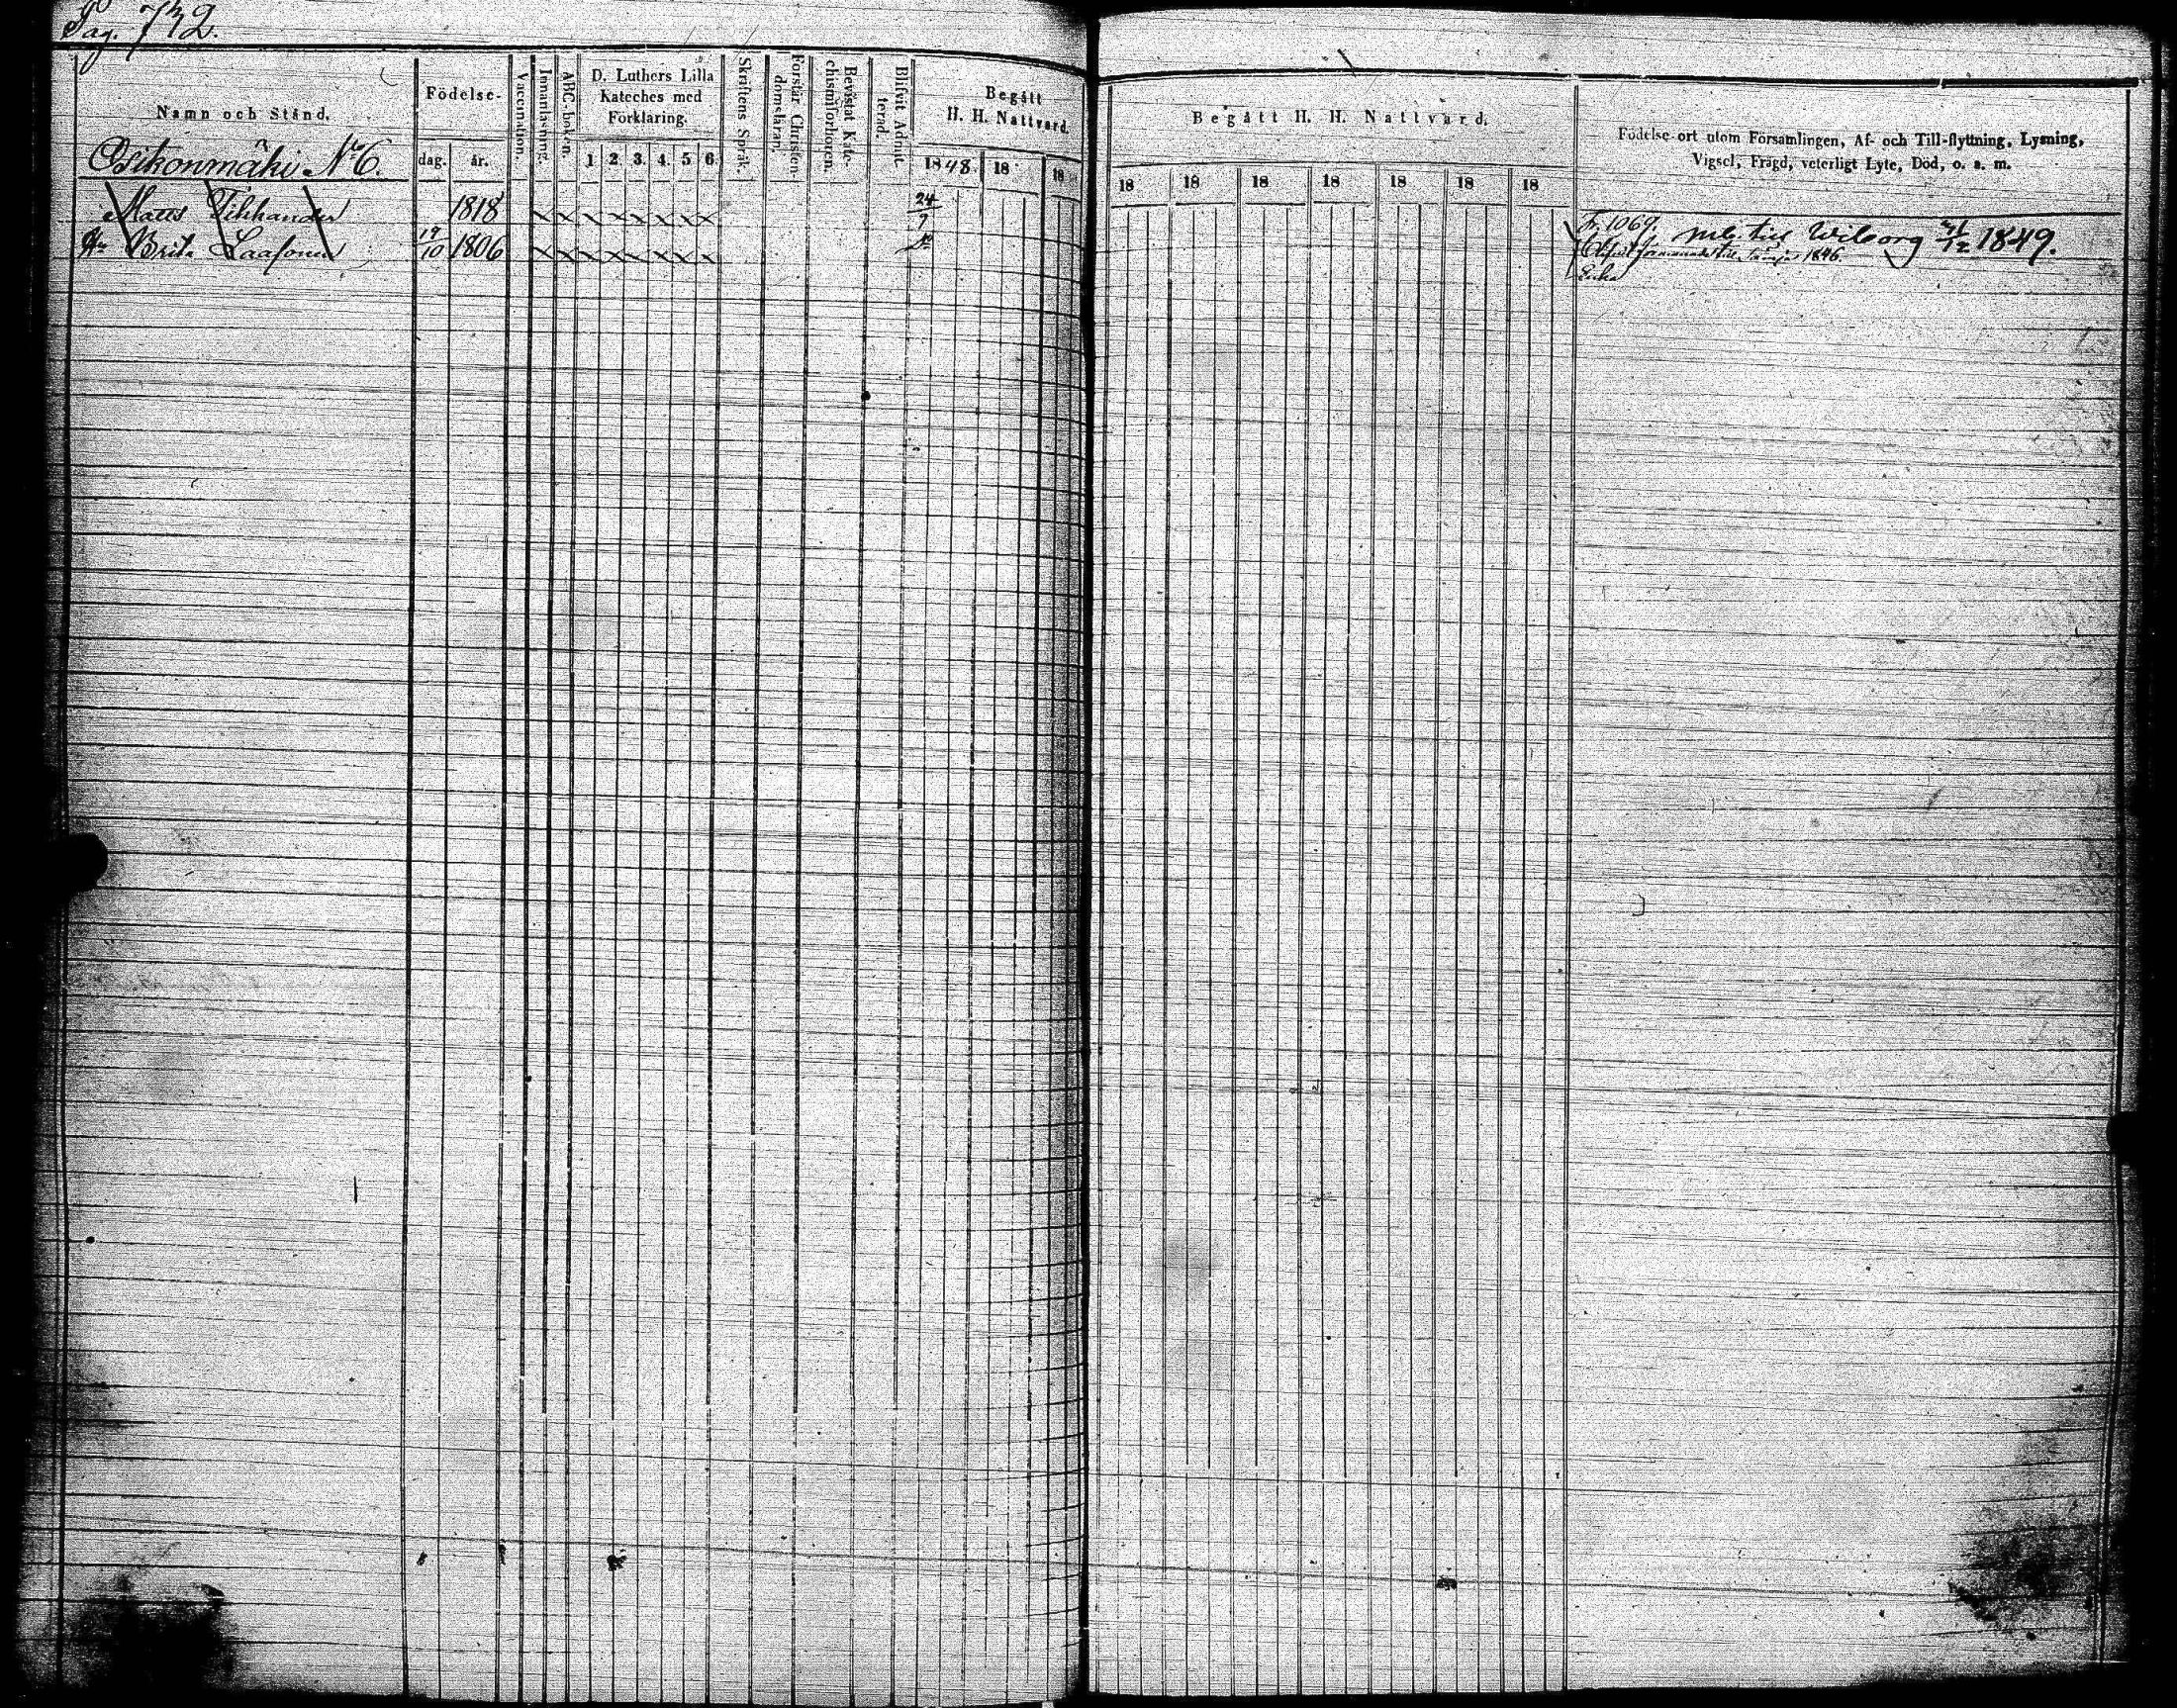 Pag. 732.
Namn och Stånd.
Födelse-
dag.
år.
Vaccination.
Innanläsning.
ABC-boken.
D. Luthers Lilla
Kateches med
Förklaring.
1 2. 3. 4. 5 6
Skriftens Språk.
Förstår Christen-
domsläran.
Bevistat Kate-
chismiförhören.
Blifvit Admit-
terad.
Begått
H. H. Nattvard.
1848. 18 18
Begått H. H. Nattvard.
18 18 18 18 18 18 18
Födelse-ort utom Församlingen, Af- och Till-flyttning, Lysning,
Vigsel, Frägd, veterligt Lyte, Död, o. s. m.
Osikonmäki No 6.
Matts Tihhander 1818 24/9
Hu Brita Laasonen 19/10 1806
Fr. 1069.
till Wiborg 1849.
1846.